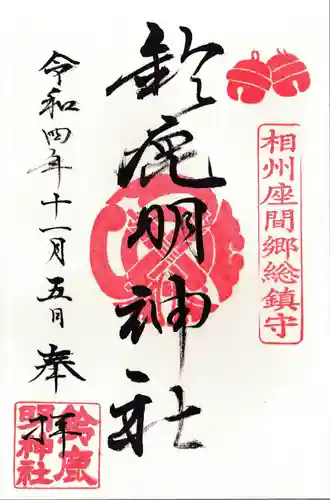 相州座間郷総鎮守
鈴鹿明神社
令和四年十一月五日
奉拝
鈴鹿
明神社